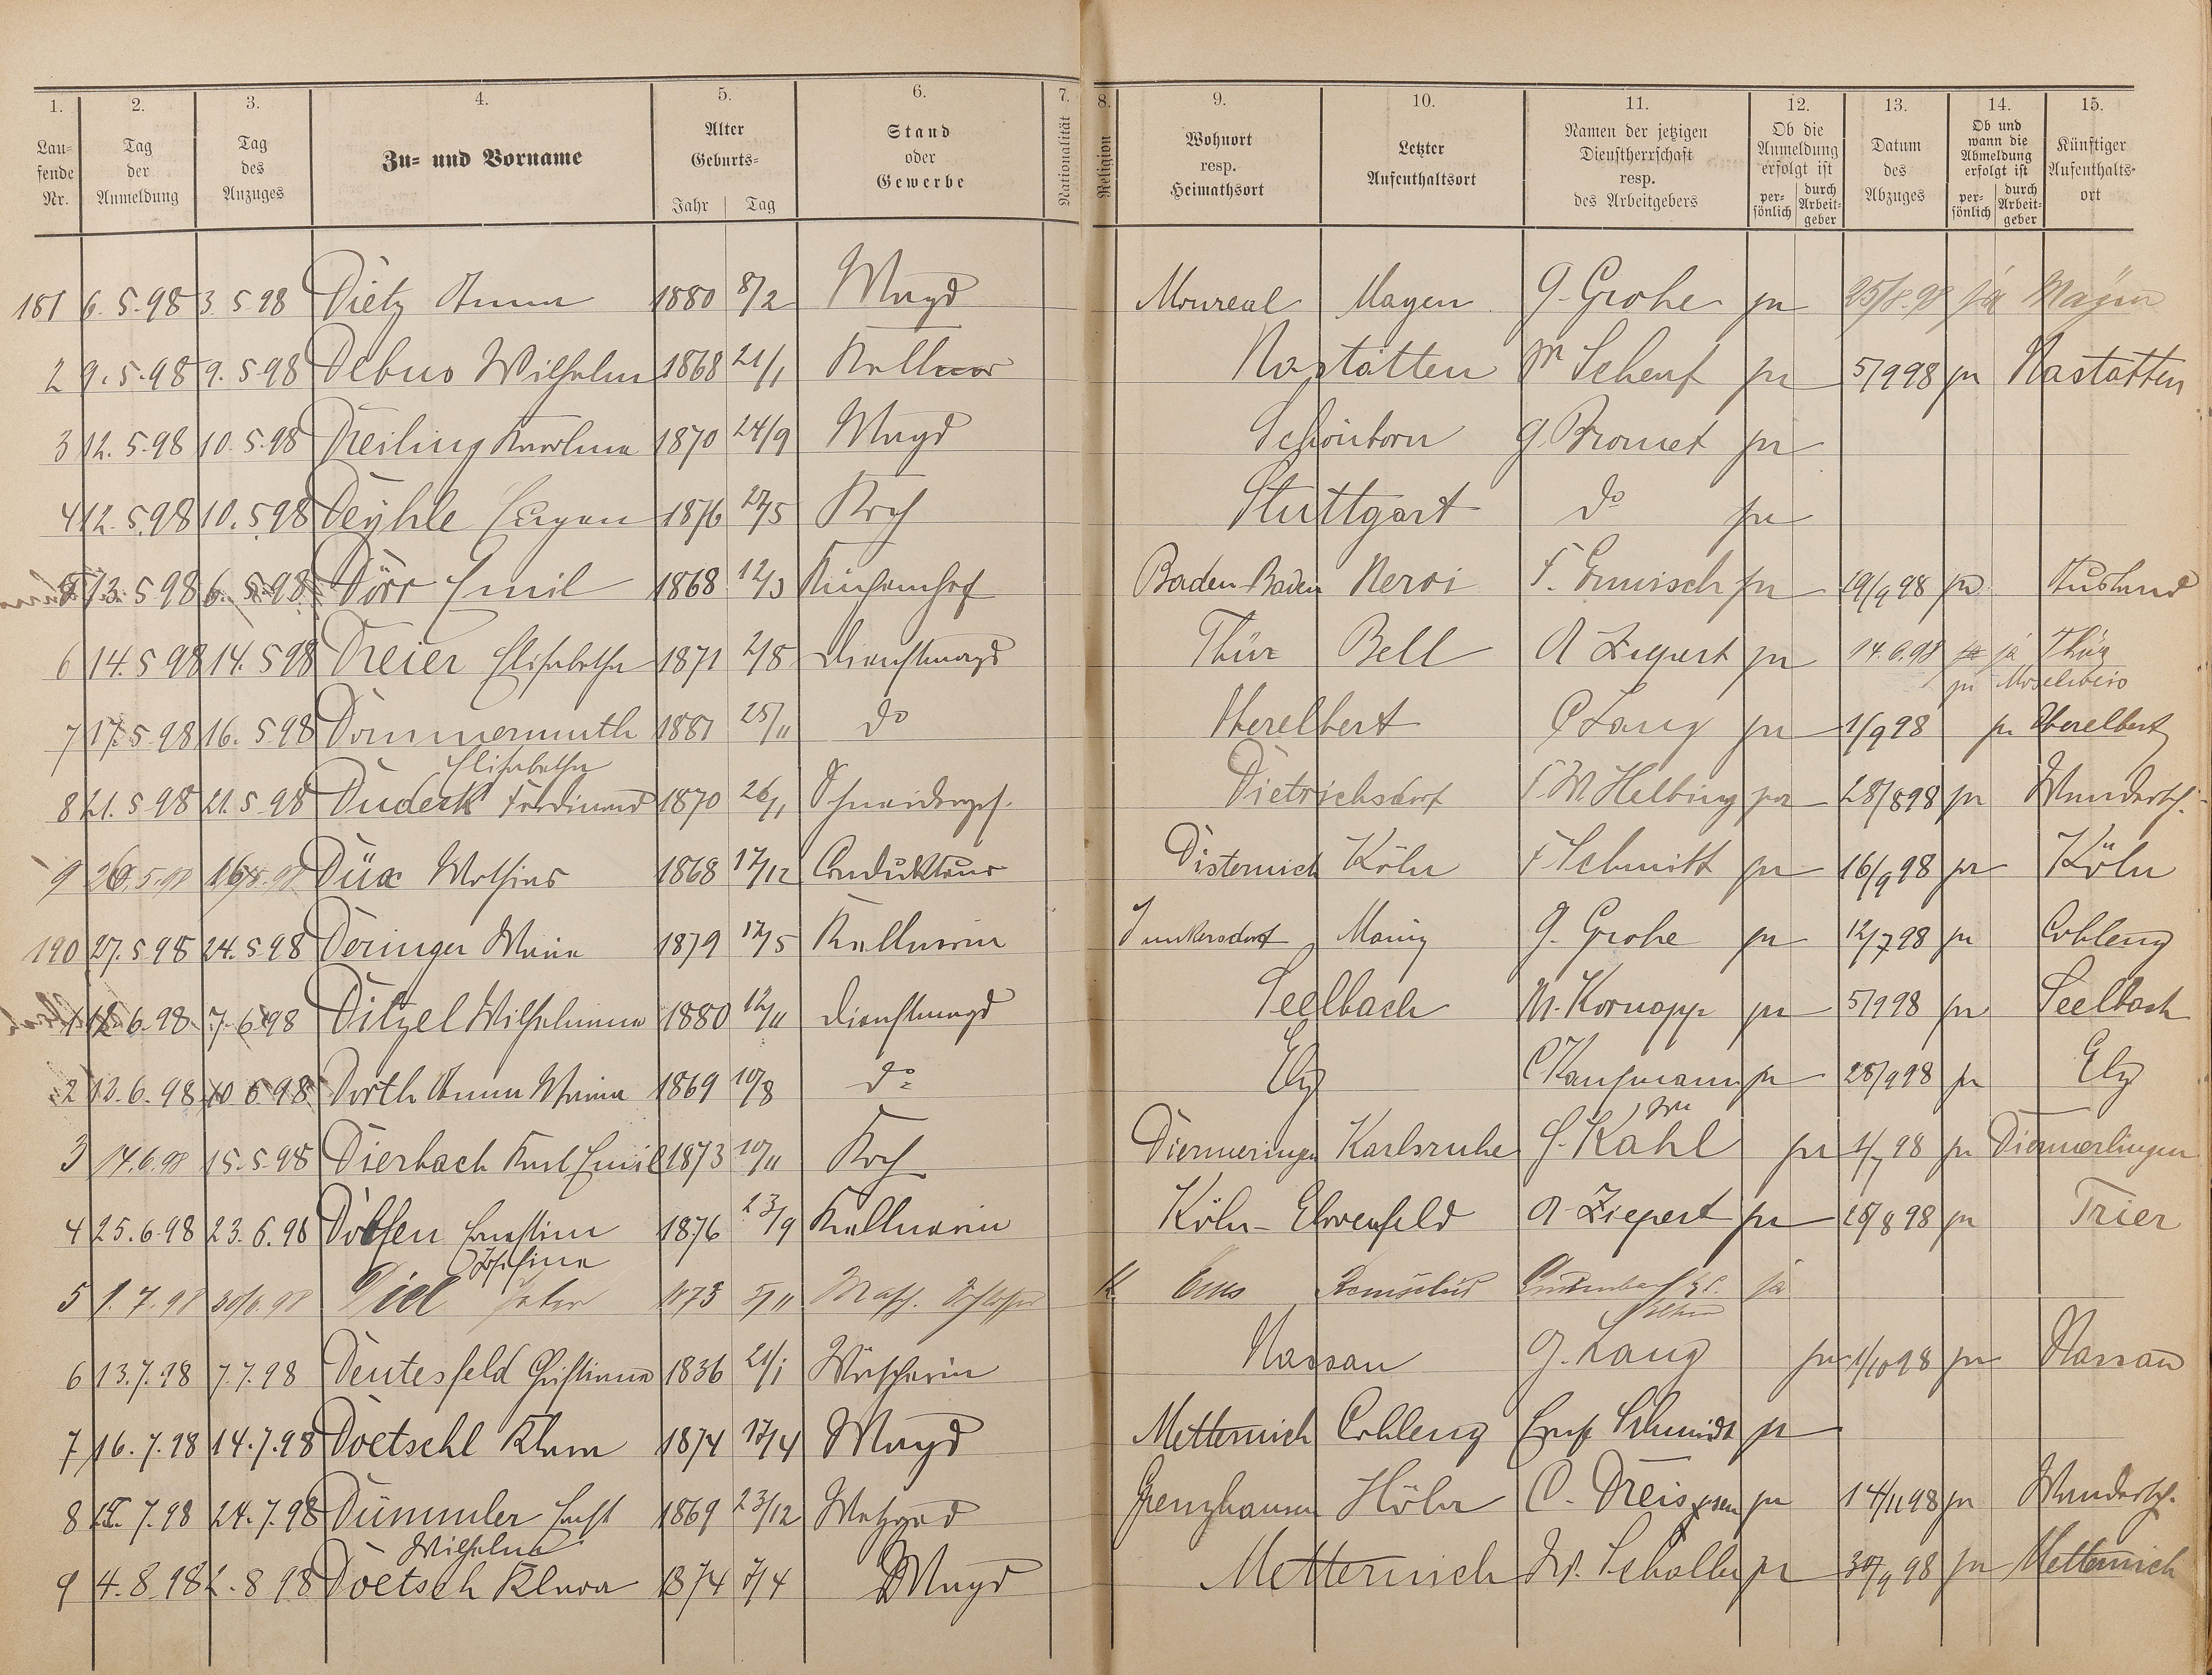 1. 2. 3. 4. 5. 6. 7. 8. 9. 10. 11. 12. 13. 14. 15.
Lau-fende Nr. | Tag der Anmeldung | Tag des Anzuges | Zu- und Vorname | Alter Geburts- Jahr Tag | Stand oder Gewerbe | Nationalität | Religion | Wohnort resp. Heimathsort | Letzter Aufenthaltsort | Namen der jetzigen Dienstherrschaft resp. des Arbeitgebers | Ob die Anmeldung erfolgt ist per-sönlich durch Arbeit-geber | Datum des Abzuges | Ob und wann die Abmeldung erfolgt ist per-sönlich durch Arbeit-geber | Künftiger Aufenthalts-ort
181 6.5.98 3.5.98 Dietz Anna 1880 8/2 Magd Monreal Mayen G. Grohe ja 25/8.98 ja Mayen
2 9.5.98 9.5.98 Debus Wilhelm 1868 21/1 Kellner Nastätten Schenk ja 5/9 98 ja Nastätten
3 12.5.98 10.5.98 Dreiling Karolina 1870 24/9 Magd Schönborn G. Bromet ja
4 12.5.98 10.5.98 Deyhle Eugen 1876 27/5 Koch Stuttgart do ja
5 13.5.98 6.5.98 Dörr Emil 1868 12/3 Küchenchef Baden-Baden Nervi F. Ermisch ja 19/9 98 ja Ausland
6 14.5.98 14.5.98 Dreier Elisabetha 1871 2/8 Dienstmagd Thür Bell A Ziepert ja 14.6.98 ja Thür
ja Moselweis
7 17.5.98 16.5.98 Dommermuth 1881 25/11 do Oberelbert C Lang ja 1/9 98 ja Oberelbert
Elisabetha
8 21.5.98 21.5.98 Dudeck Ferdinand 1870 26/1 Schneiderges. Dietrichsdorf F. W. Helbing ja 28/8 98 ja Wandersch.
9 26.5.98 Düx Mathias 1868 17/12 Condukteur Disternich Köln F Schmitt ja 16/9 98 ja Köln
190 27.5.98 24.5.98 Deringer Maria 1879 17/5 Kellnerin Junkersdorf Mainz G. Grohe ja 12/7 98 ja Coblenz
1 12.6.98 7.6.98 Ditzel Wilhelmina 1880 12/11 Dienstmagd Seelbach M. Kornapp ja 5/9 98 ja Seelbach
2 13.6.98 10.6.98 Dorth Anna Maria 1869 10/8 do Elz C Kaufmann ja 28/9 98 ja Elz
3 14.6.98 15.5.98 Dierbach Karl Emil 1873 10/11 Koch Diermeringen Karlsruhe Kahl ja 1/7 98 ja Diermerlingen
4 25.6.98 23.6.98 Dolfen Ernstine 1876 23/9 Kellnerin Köln-Ehrenfeld A Ziepert ja 28/8 98 ja Trier
Josefina
5 1.7.98 30/6.98 Diel Peter 1873 5/11 Masch. Schlosser K. Ems Remscheid ja
6 13.7.98 7.7.98 Deutesfeld Christiana 1836 21/1 Wäscherin Nassau G. Lang ja 1/10 98 ja Nassau
7 16.7.98 14.7.98 Doetschl Klara 1874 17/4 Magd Metternich Coblenz Schmidt ja
8 7.98 24.7.98 Dümmler Ernst 1869 23/12 Metzger Grenzhausen Höhr C. Dreis ja 14/11 98 ja Wandersch.
Wilhelm
9 4.8.98 2.8.98 Doetsch Klara 1874 7/4 Magd Metternich W. Scholler ja 30/9 98 ja Metternich